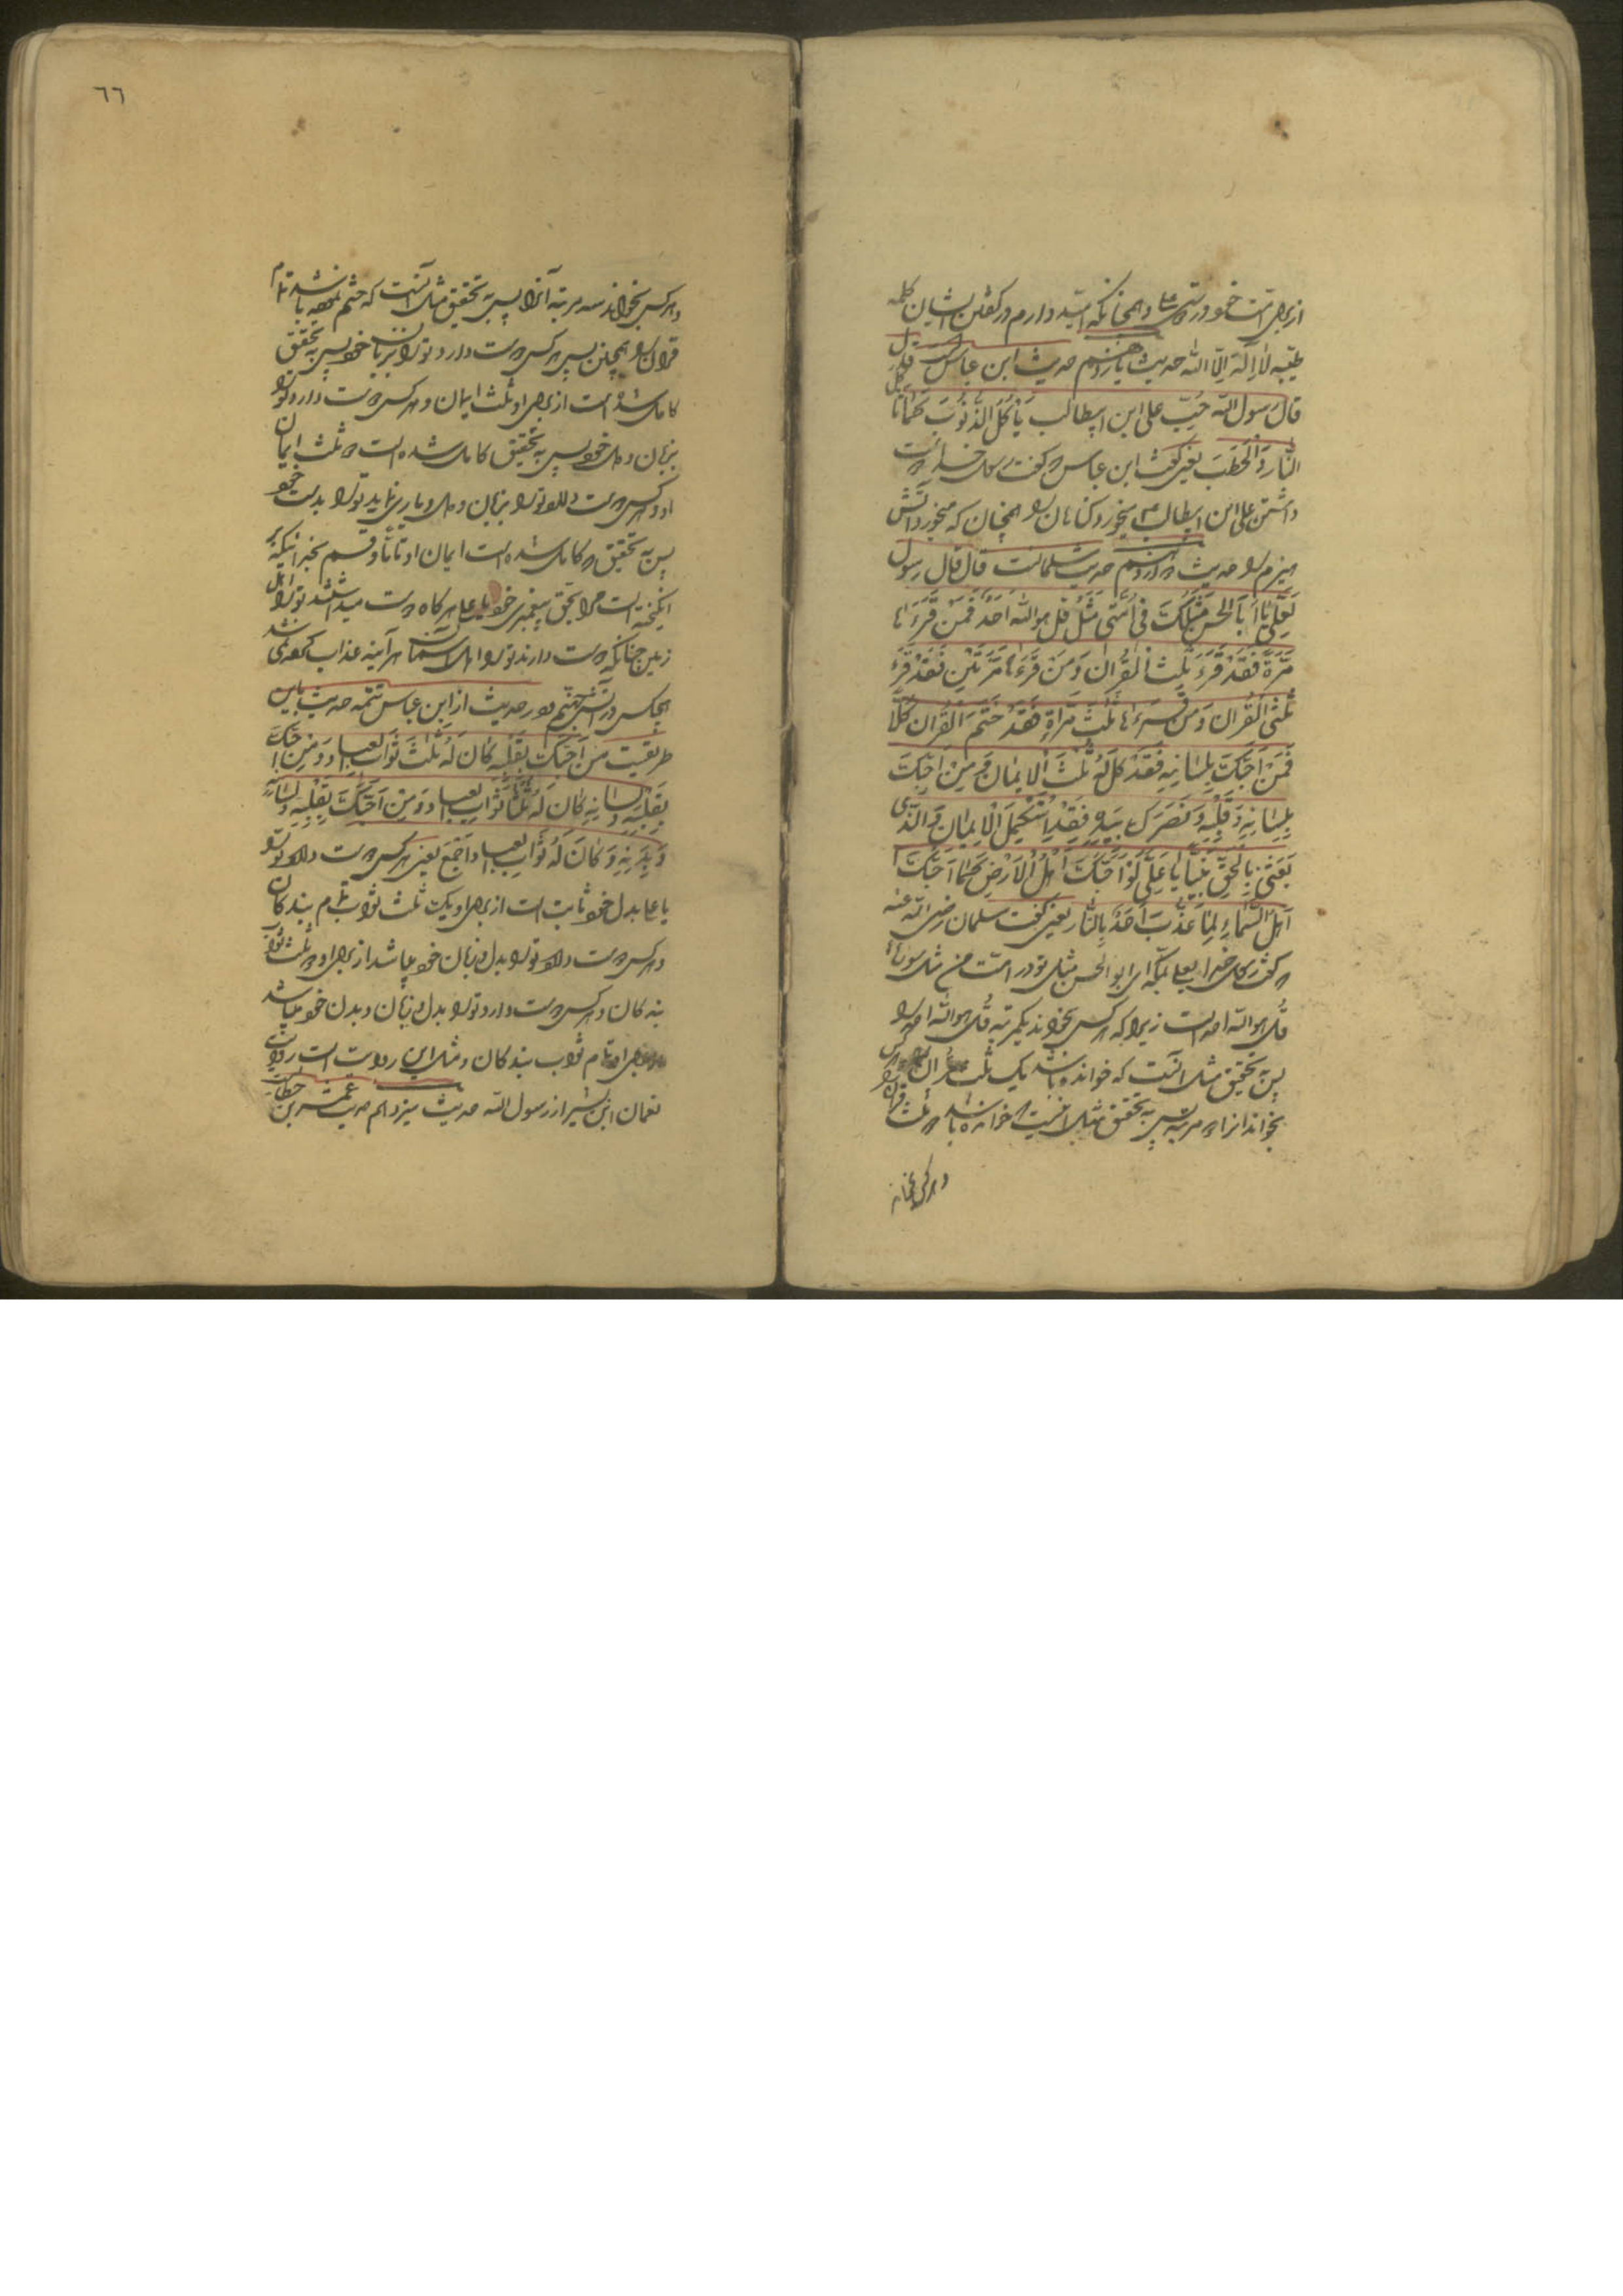 از برای امت خود در دوستی علی و همچنانکه امید دارم در گفتن ایشان کلمه
طیبه لا اله الا الله حدیث یازدهم حدیث ابن عباس است
قال رسول الله حُبّ علی ابن ابیطالب یَأکُلُ الذُّنُوبَ کَمٰا تَأکُلُ
النّٰار وَالحَطَبَ یعنی گفت ابن عباس که گفت رسول خدا دوست
داشتن علی ابن ابیطالب میخورد گناهان را همچنان که میخورد آتش
هیزم را حدیث دوازدهم حدیث سلمانست قال قال رسول
لِعَلِیّ یٰا اَبَا الحَسَن مَثَلُکَ فی اُمَّتی مَثَلُ قل هو الله اَحَد فَمَنْ قَرَءَهٰا
مَرَّةً فَقَدْ قَرَءَ ثُلثَ القُرٰان وَمَنْ قَرَءَهٰا مَرَّتَیْنِ فَقَدْ قَرَءَ
ثُلثَیِ القُرٰان وَمَن قَرَءَهٰا ثَلٰثَ مَرّاةٍ فَقَدْ خَتَمَ القُرٰان کُلّاً
فَمَنْ اَحَبَّکَ بِلِسٰانِهِ فَقَدْ کَمُلَ لَهُ ثُلثُ الایمٰان وَمَنْ اَحَبَّکَ
بِلِسٰانِهِ وَقَلْبِهِ وَنَصَرَکَ بِیَدِهِ فَقَدِ اسْتَکْمَلَ الایمٰان وَالَّذی
بَعَثَنی بِالحَقِّ نَبِیّاً یٰا عَلِیّ لَوْ اَحَبَّکَ اَهْلُ الاَرْضِ کَمٰا اَحَبَّکَ
اَهْلُ السَّمٰاءِ لَمٰا عُذِّبَ اَحَدٌ بِالنّٰار یعنی گفت سلمان رضی الله عنه
که گفت رسول خدا بعلی که ای ابو الحسن مثل تو در امت من مثل سوره
قُل هو الله احد است زیرا که هر کس بخواند یکمرتبه قُل هو الله احد را
پس به تحقیق مثل آنست که خوانده باشد یک ثلث قرآن را و هر کس
بخواند آنرا دو مرتبه پس به تحقیق مثل آنست که خوانده باشد دو ثلث قرآن را
و هر کس بخواند
٦٦
و هر کس بخواند سه مرتبه آنرا پس به تحقیق مثل آنست که ختم نموده باشد تمام
قرآن را همچنین پس هر کس دوست دارد تو را بزبان خود پس به تحقیق
کامل شده است از برای او ثلث ایمان و هر کس دوست دارد تو را
بزبان و دل خود پس به تحقیق کامل شده است دو ثلث ایمان
او و هر کس دوست دارد تو را بزبان و دل و یاری نماید تو را بدست خود
پس به تحقیق که کامل شده است ایمان او تماماً و قسم بخدائیکه بر
انگیخته است مرا بحق به پیغمبری خود یا علی هر گاه دوست میداشتند تو را اهل
زمین چنانکه دوست دارند تو را اهل آسمان هر آینه عذاب کرده نمی شد
هیچکس در آتش جهنم و در حدیث از ابن عباس تتمه حدیث باین
طریقست مَن اَحَبَّکَ بِقَلْبِهِ کٰانَ لَهُ ثُلثُ ثَوٰابِ العِبٰاد وَمَنْ اَحَبَّکَ
بِقَلْبِهِ وَلِسٰانِهِ کٰانَ لَهُ ثُلثٰا ثَوٰابِ العِبٰاد وَمَنْ اَحَبَّکَ بِقَلْبِهِ وَلِسٰانِهِ
وَبَدَنِهِ وَکٰانَ لَهُ ثَوٰابُ العِبٰاد اَجْمَعَ یعنی هر کس دوست دارد تو را
یا علی بدل خود ثابت است از برای او یک ثلث ثواب تمام بندگان
و هر کس دوست دارد تو را بدل و زبان خود میباشد از برای او دو ثلث ثواب
بندگان و هر کس دوست دارد تو را بدل و زبان و بدن خود میباشد
از برای او تمام ثواب بندگان و مثل این روایت است روایت
نعمان ابن بشیر از رسول الله حدیث سیزدهم حدیث عمر بن خطاب است